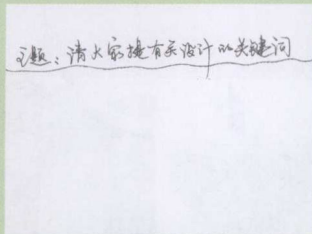 主题：请大家提有关设计的关键词